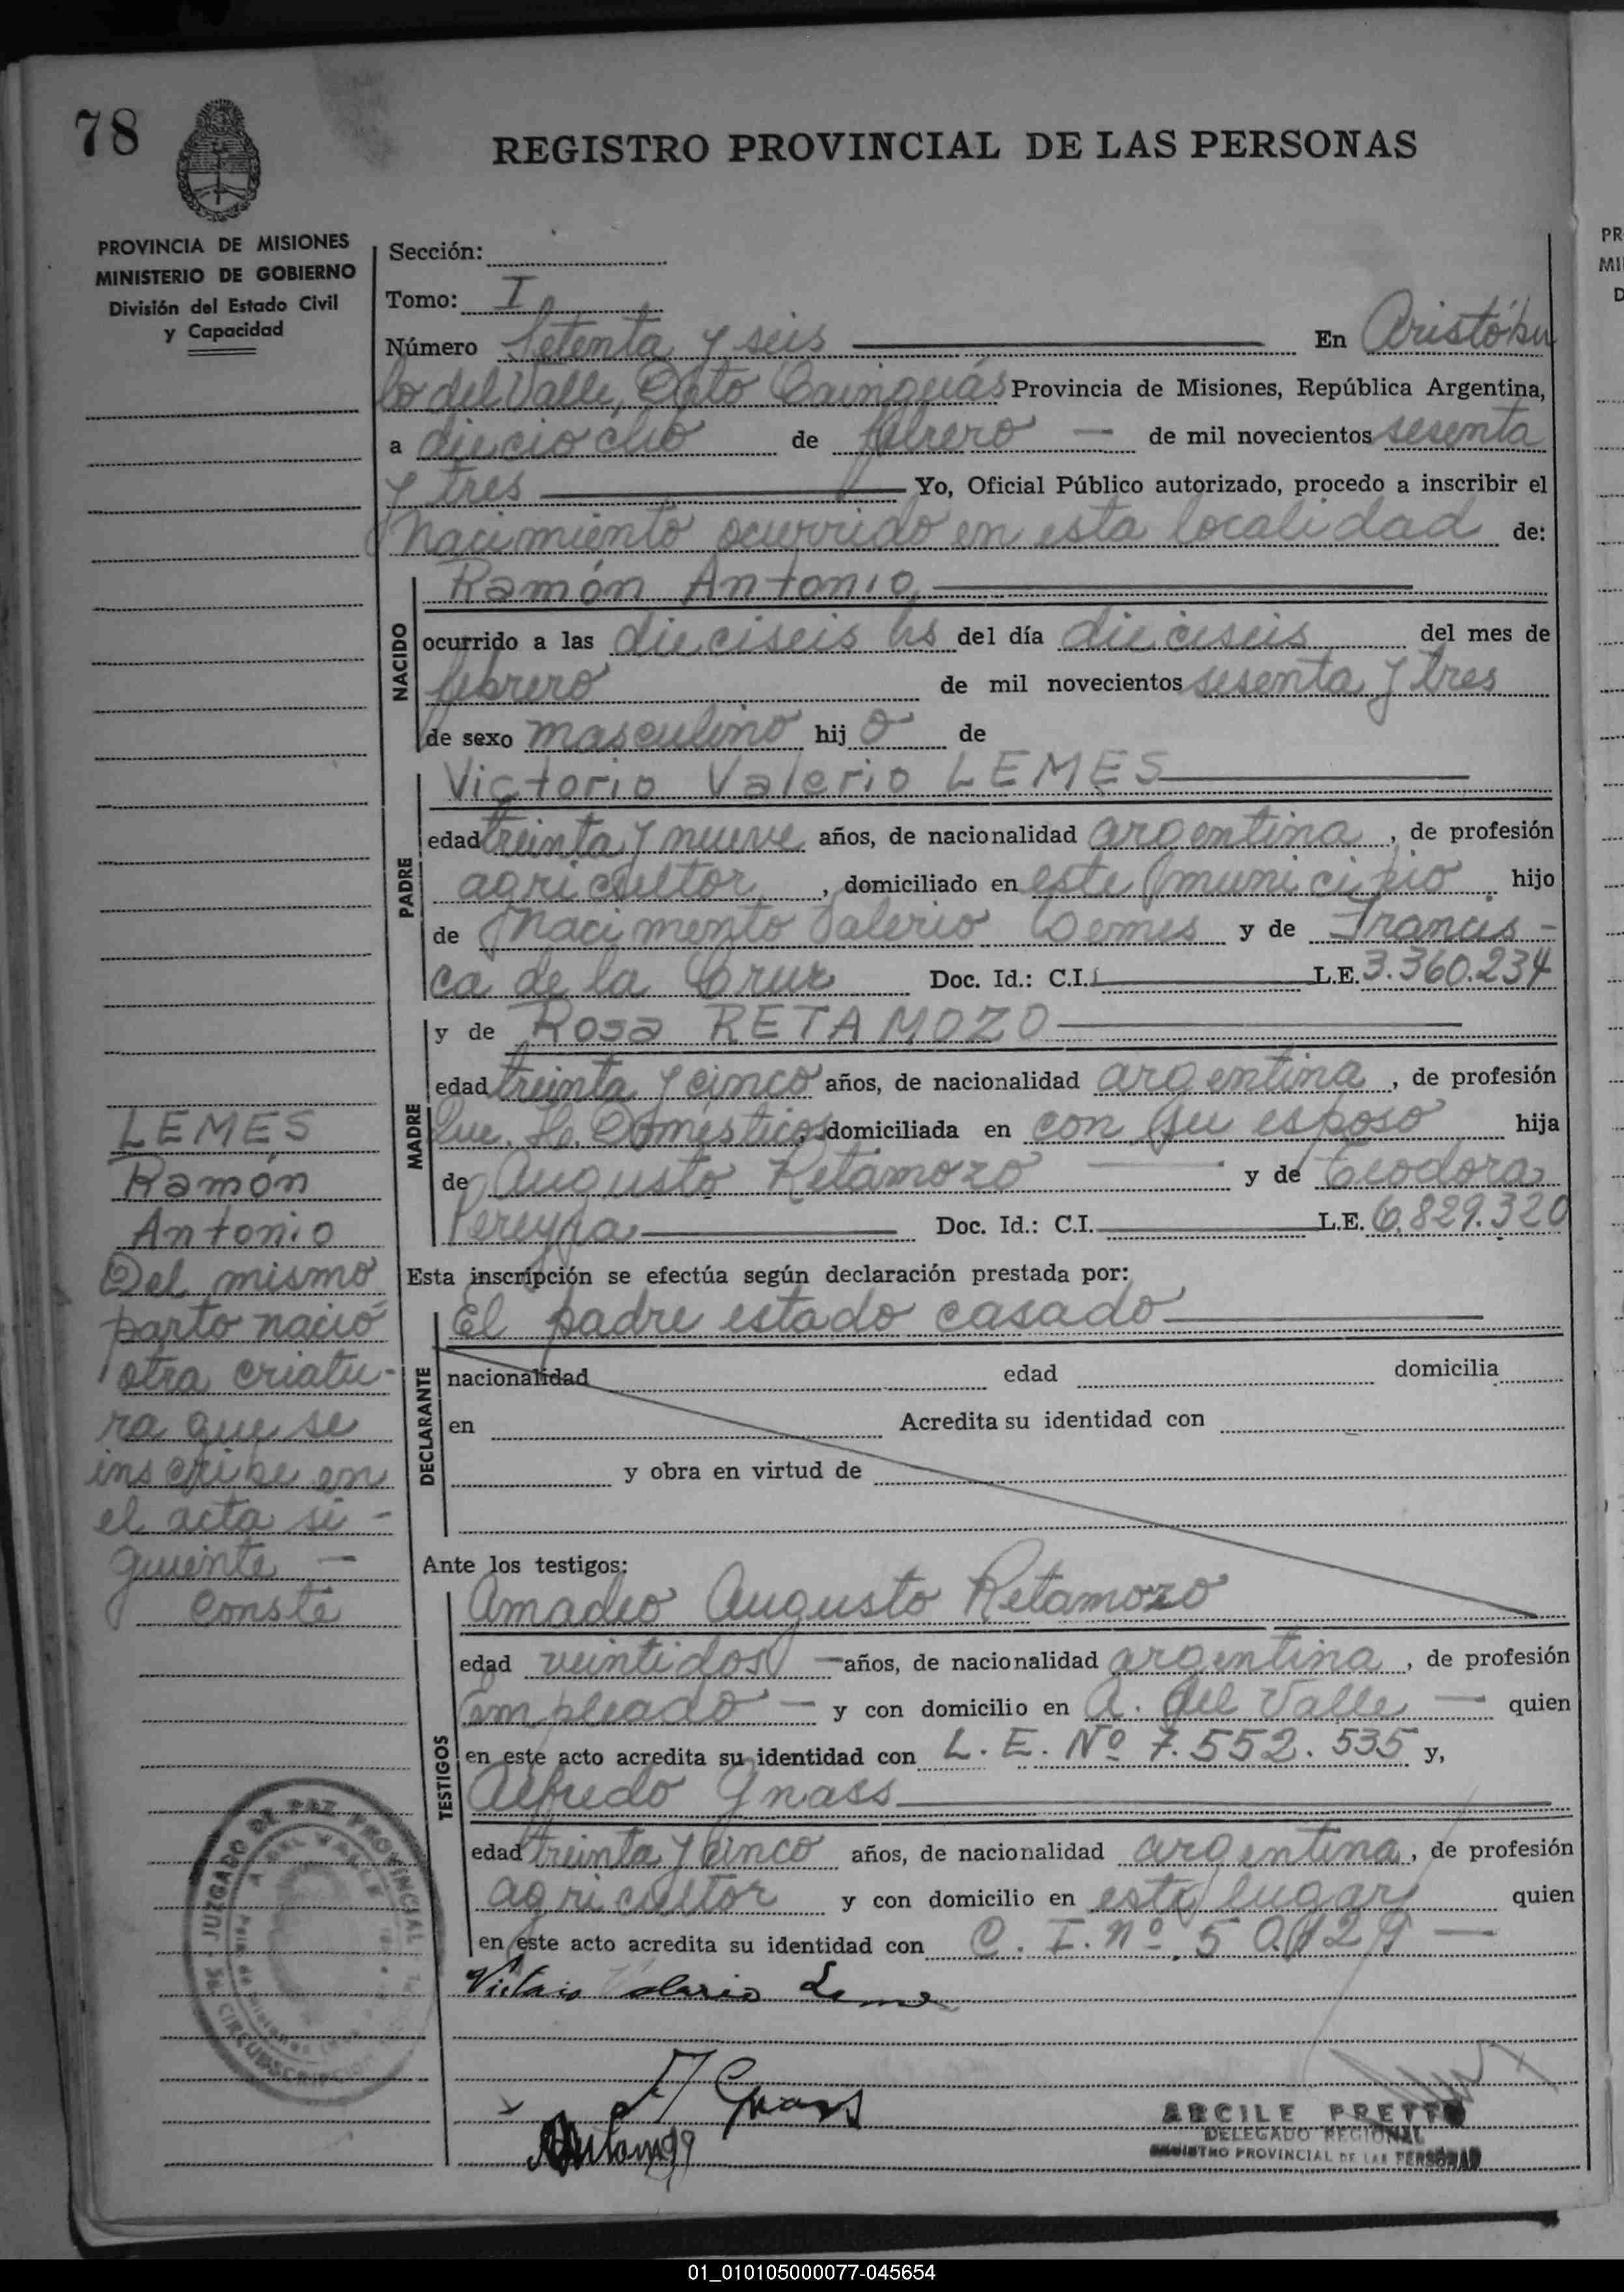 78
REGISTRO PROVINCIAL DE LAS PERSONAS
PROVINCIA DE MISIONES
MINISTERIO DE GOBIERNO
División del Estado Civil
y Capacidad
Sección:
Tomo: I
Número Setenta y seis En Aristóbu
lo del Valle, Dpto Cainguás Provincia de Misiones, República Argentina,
a dieciocho de febrero de mil novecientos sesenta
y tres Yo, Oficial Público autorizado, procedo a inscribir el
Nacimiento ocurrido en esta localidad de:
NACIDO
Ramón Antonio
ocurrido a las dieciseis hs del día dieciseis del mes de
febrero de mil novecientos sesenta y tres
de sexo masculino hijo de
PADRE
Victorio Valerio LEMES
edad treinta y nueve años, de nacionalidad argentina, de profesión
agricultor, domiciliado en este municipio hijo
de Nacimento Valerio Lemes y de Francis-
ca de la Cruz Doc. Id.: C.I. L.E. 3.360.234
MADRE
y de Rosa RETAMOZO
edad treinta y cinco años, de nacionalidad argentina, de profesión
Que. Ho. Domésticos, domiciliada en con su esposo hija
de Augusto Retamozo y de Teodora
Pereyra Doc. Id.: C.I. L.E. 6.829.320
LEMES
Ramón
Antonio
Del mismo
parto nació
otra criatu-
ra que se
inscribe en
el acta si-
guiente
Conste
Esta inscripción se efectúa según declaración prestada por:
DECLARANTE
El padre estado casado
nacionalidad edad domicilia
en Acredita su identidad con
y obra en virtud de
Ante los testigos:
TESTIGOS
Amadeo Augusto Retamozo
edad veintidos años, de nacionalidad argentina, de profesión
empleado y con domicilio en A. del Valle quien
en este acto acredita su identidad con L. E. Nº 7.552.535 y,
Alfredo Gnass
edad treinta y cinco años, de nacionalidad argentina, de profesión
agricultor y con domicilio en este lugar quien
en este acto acredita su identidad con C. I. Nº
Victorio Valerio Leme
A Gnass
JUZGADO DE PAZ PROVINCIAL
A. DEL VALLE
CIRCUNSCRIPCION
ARCILE PRETTO
DELEGADO REGIONAL
REGISTRO PROVINCIAL DE LAS PERSONAS
01_010105000077-045654